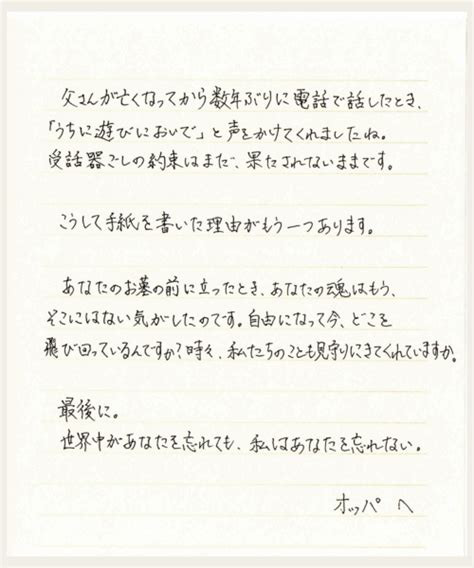 父さんが亡くなってから数年ぶりに電話で話したとき、
「うちに遊びにおいで」と声をかけてくれましたね。
受話器ごしの約束はまだ、果たされないままです。
こうして手紙を書いた理由がもう一つあります。
あなたのお墓の前に立ったとき、あなたの魂はもう、
そこにはない気がしたのです。自由になって今、どこを
飛び回っているんですか?時々、私たちのことも見守りにきてくれていますか。
最後に。
世界中があなたを忘れても、私はあなたを忘れない。
オッパ へ